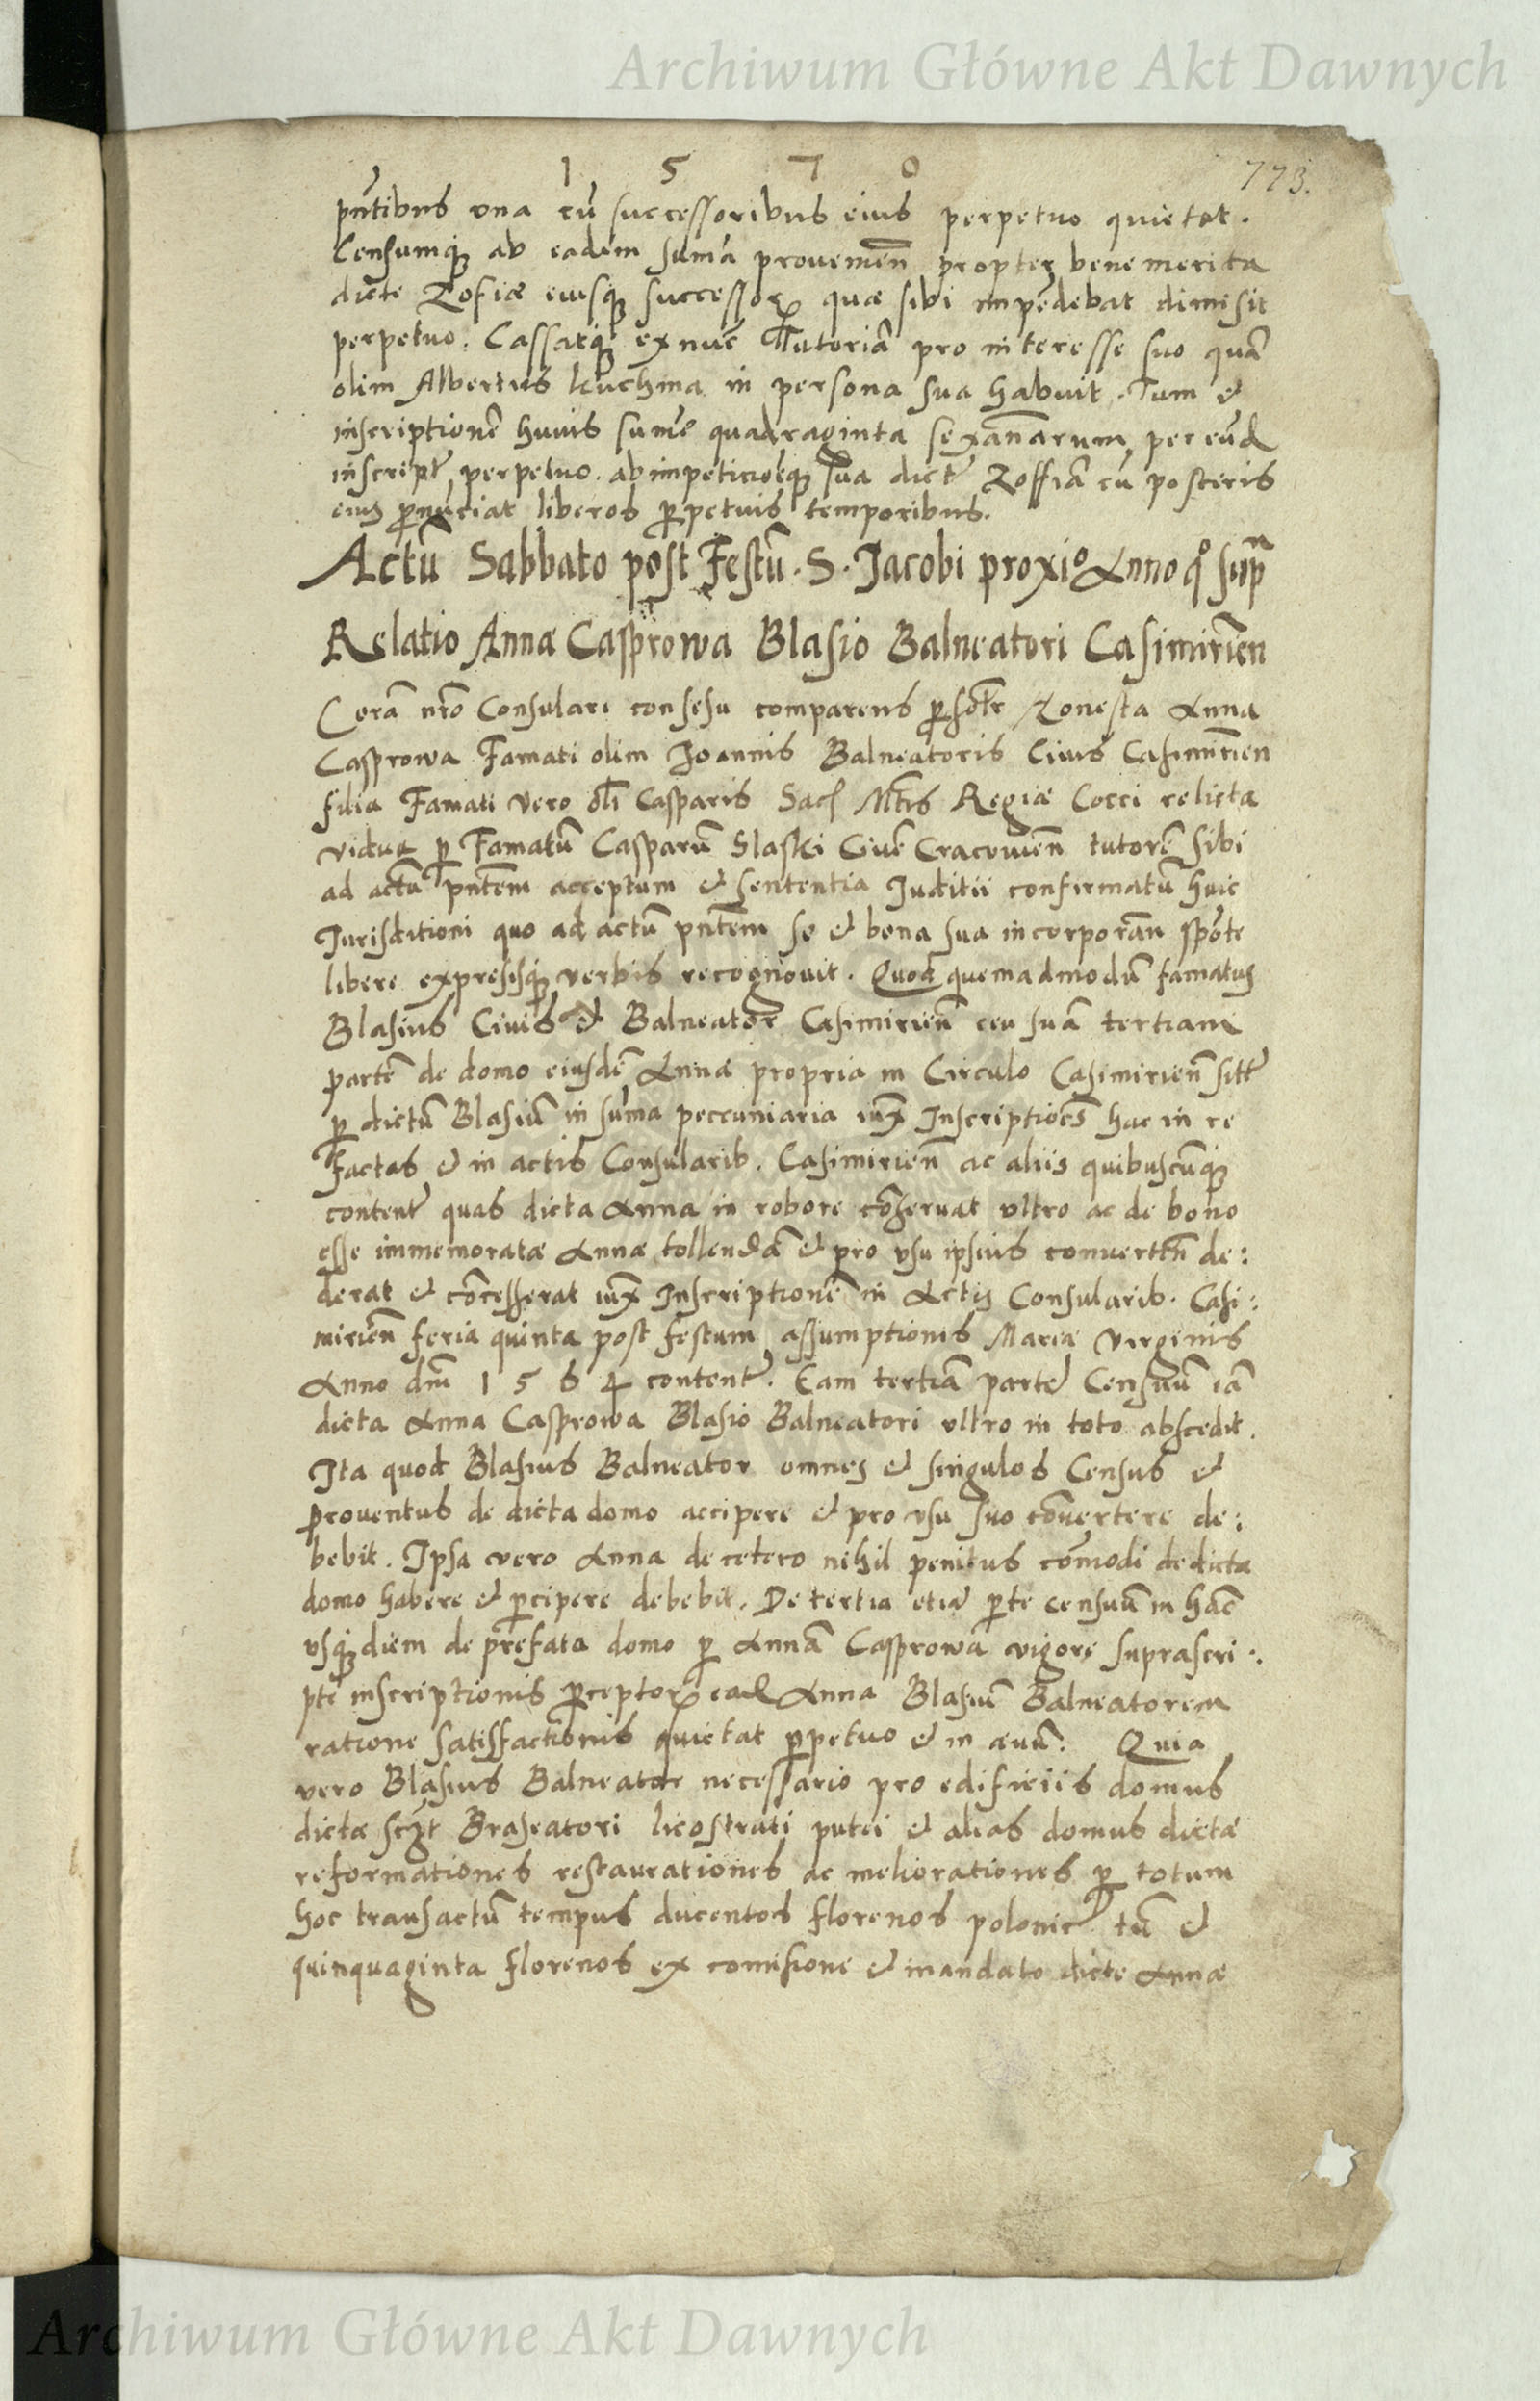 Archiwum Główne Akt Dawnych
1 5 7 0
773.
pñtibus una cũ successoribus eius perpetuo quietat.
Censumq̃ ab eadem sum̃a provenieñ propter bene merita
dicte Zofiæ eiusq̃ successoꝝ quæ sibi impẽdebat dimisit
perpetuo. Cassatq̃ ex nũc Tutoriã pro interesse suo quã
olim Albertus Kuchma in persona sua habuit. Tum et
inscriptionẽ huius sum̃e quadraginta sexañarum per eũd
inscript̃ perpetuo. ab impeticiõeq̃ sua dict̃ Zoffiã cũ posteris
eius ꝓnũciat liberos ꝑpetuis temporibus.
Actũ Sabbato post Festũ. S. Jacobi proxio Anno qo sup̃
Relatio Annæ Casprowa Blasio Balneatori Casimirieñ
Corã nrõ Consulari consesu comparens ꝑsõlr Honesta Anna
Casprowa Famati olim Joannis Balneatoris Civis Casimirieñ
filia Famati vero olĩ Casparis Sac Mtis Regiæ Cocci relicta
vidua ꝑ Famatũ Casparũ Slaski Civẽ Cracovieñ tutorẽ sibi
ad actũ pñtem acceptum et sententia Juditii confirmatũ huic
Jurisditioni quo ad actũ pñtem se et bona sua incorporãn spõte
libere expresisq̃ verbis recognovit. Quod quemadmodũ famatus
Blasius Civis et Balneator Casimirieñ ceu suã tertiam
partẽ de domo eiusdẽ Annæ propria in Circulo Casimirieñ sitt̃
ꝑ dictũ Blasiũ in sum̃a peccuniaria iux̃ Inscriptiões hac in re
factas et in actis Consularib. Casimirieñ ac aliis quibuscũq̃
content̃ quas dicta Anna in robore cõservat ultro ac de bono
esse immemoratæ Annæ tollendã et pro usu ipsius converteñ de:
derat et cõcesserat iux̃ Inscriptionẽ in Actis Consularib. Casi:
mirieñ feria quinta post festum assumptionis Mariæ Virginis
Anno dñi 1 5 6 4 content̃. Eam tertiã partẽ Censuũ iã
dicta Anna Casprowa Blasio Balneatori ultro in toto abscedit.
Ita quod Blasius Balneator omnes et singulos Census et
proventus de dicta domo accipere et pro usu suo cõvertere de:
bebit. Ipsa vero Anna de cetero nihil penitus cõmodi de dicta
domo habere et ꝑcipere debebit. De tertia etiã ꝑte censuũ in hãc
usq̃ diem de prefata domo ꝑ Annã Casprowã vigore suprascri:
pte inscriptionis ꝑceptoꝝ ead Anna Blasiũ Balneatorem
ratione satisfactionis quietat ꝑpetuo et in ævũ. Quia
vero Blasius Balneator necessario pro edificiis domus
dictæ scz̃t Braseatori licostrati putei et alias domus dictæ
reformationes restaurationes ac meliorationes ꝑ totum
hoc transactũ tempus ducentos florenos polonic̃ tũ et
quinquaginta florenos ex comisione et mandato dicte Annæ
Archiwum Główne Akt Dawnych